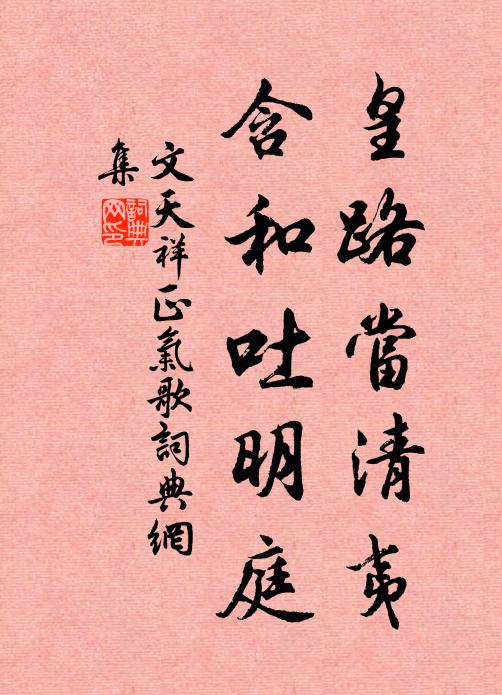 皇路當清夷
含和吐明庭
文天祥正氣歌詞典網
集
詞典
网印